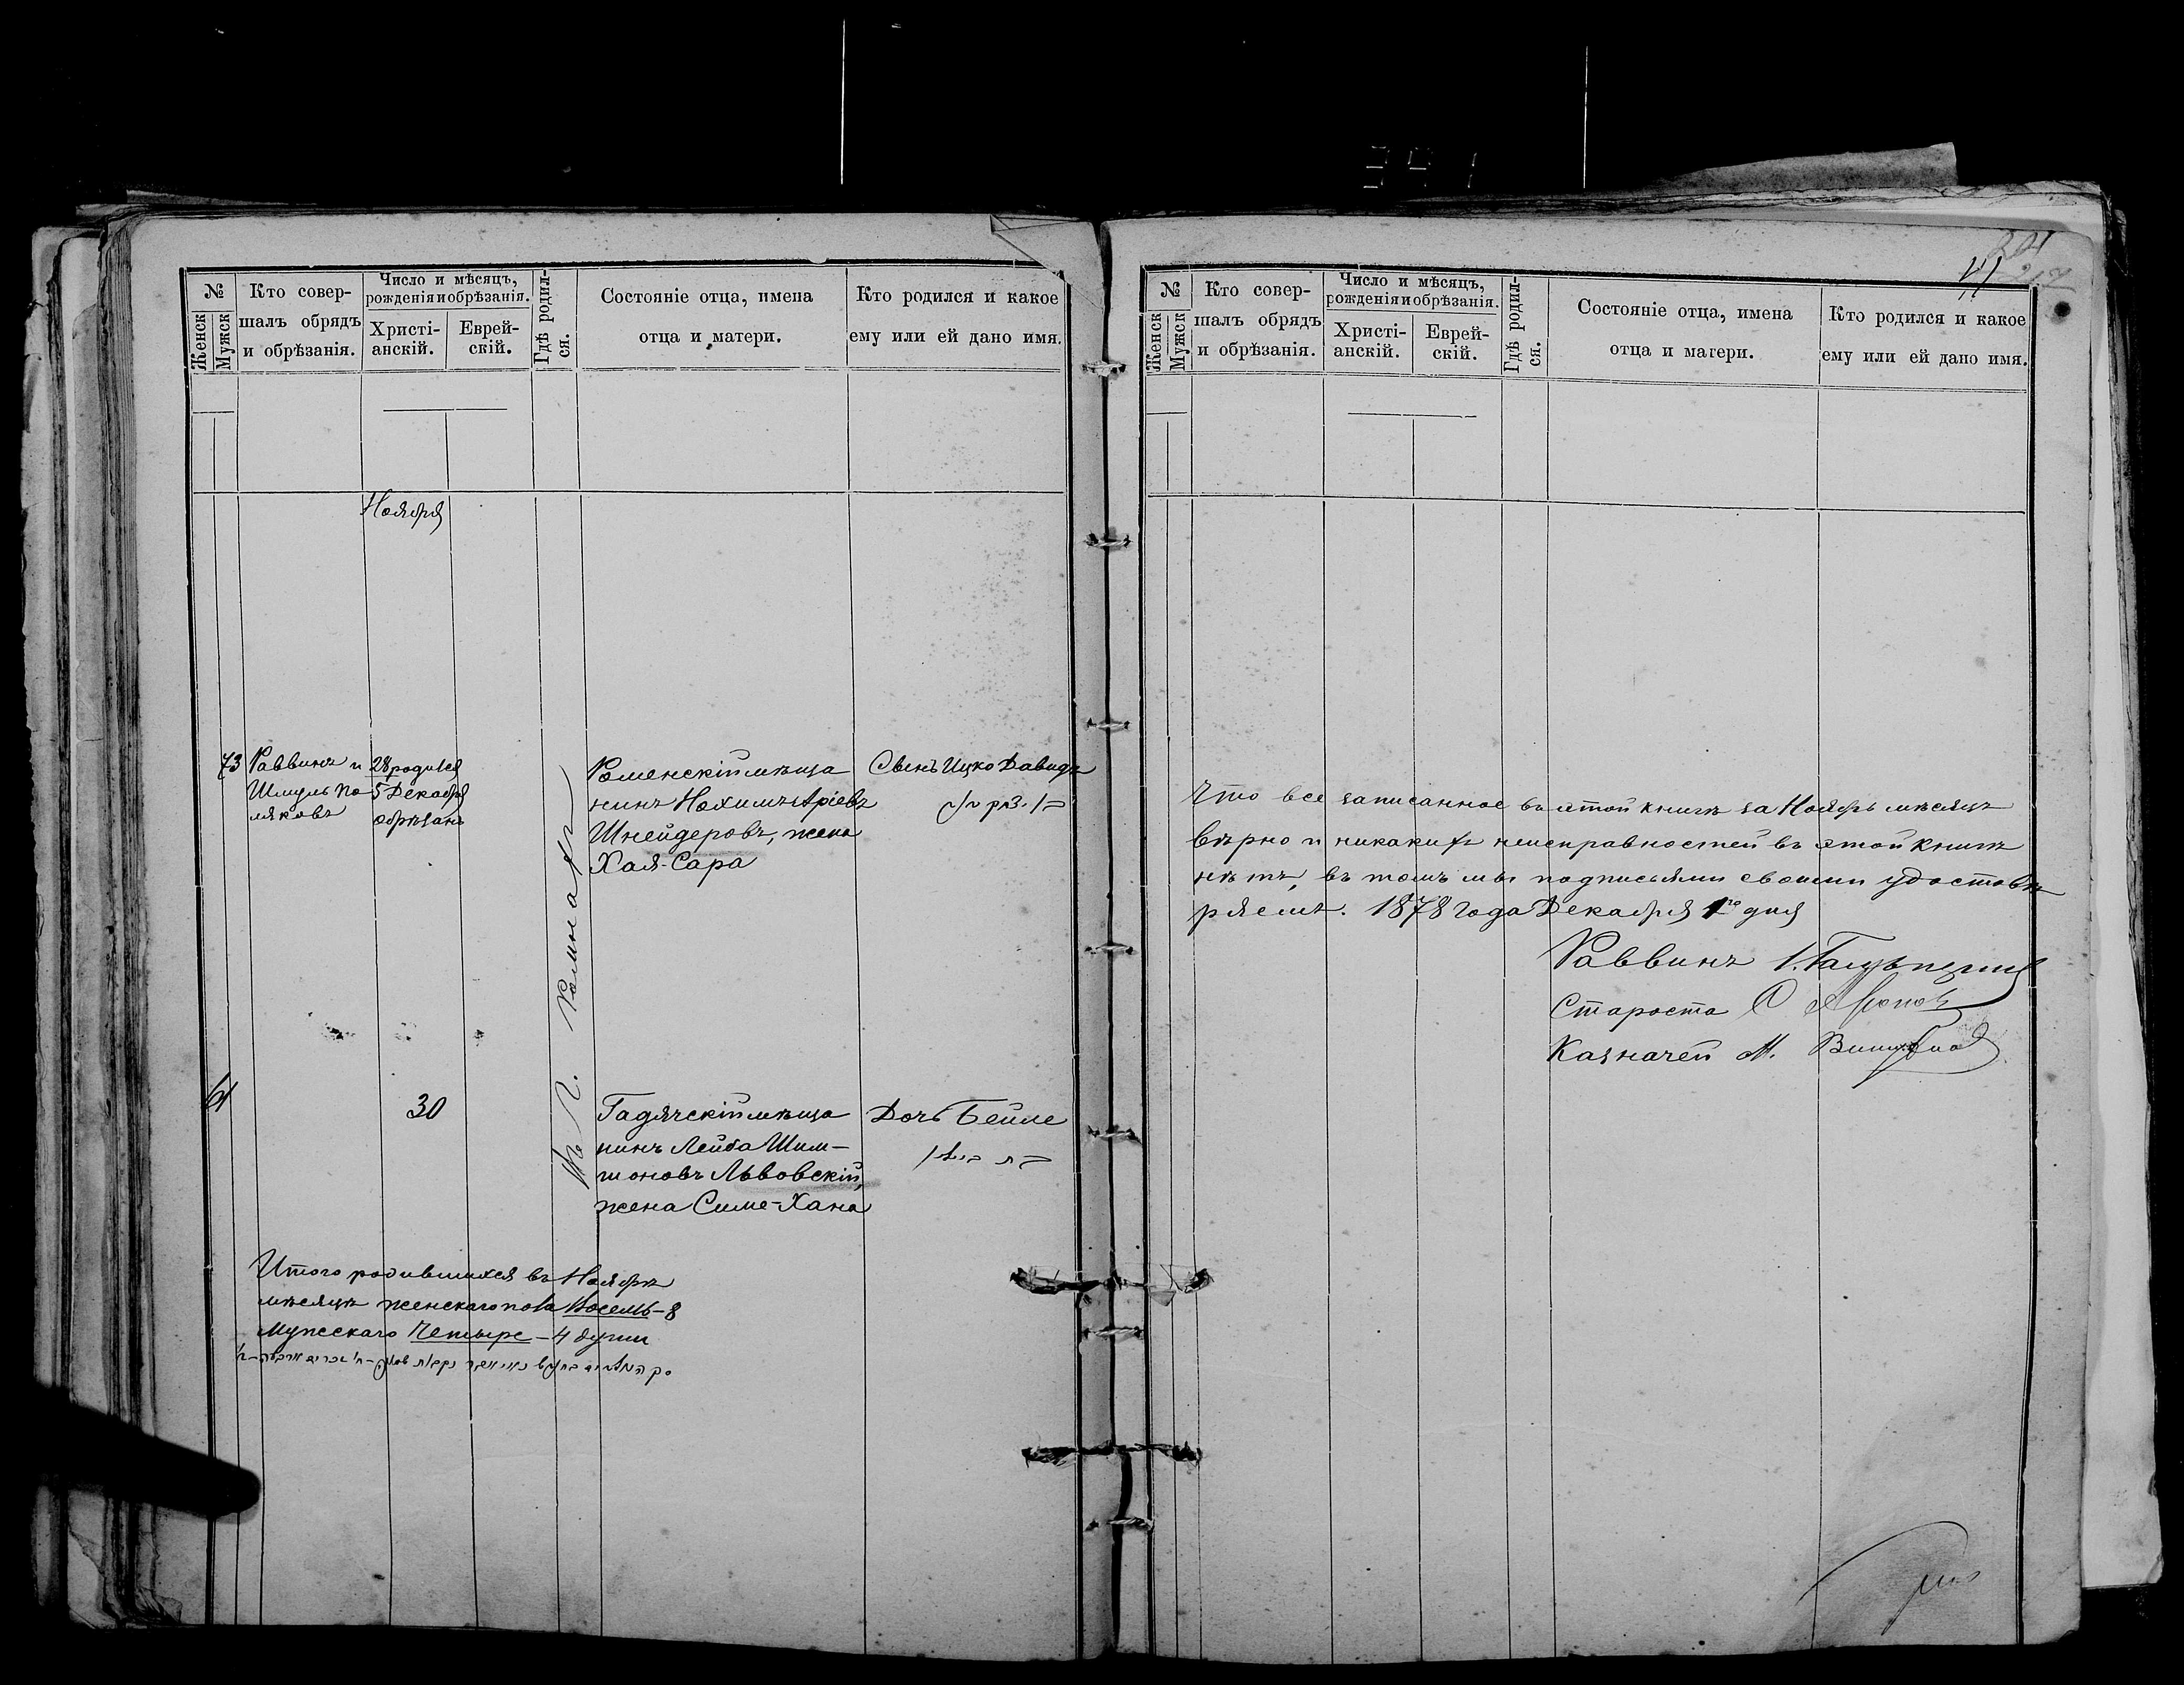 №
Женск
Мужск
Кто совер-
шалъ обрядъ
и обрѣзанія.
Число и мѣсяцъ,
рожденія и обрѣзанія.
Христі-
анскій.
Еврей-
скій.
Гдѣ родил-
ся.
Состояніе отца, имена
отца и матери.
Кто родился и какое
ему или ей дано имя.
Ноября
73
Раввинъ и
Шмуль По-
ляковъ
28 родился
5 Декабря
обрѣзанъ
Въ г. Ромнахъ
Роменскій мѣща
нинъ Нохимъ Аріевъ
Шнейдеровъ, жена
Хая-Сара
Сынъ Ицко Давидъ
61
30
Гадячскій мѣща
нинъ Лейба Шим-
шоновъ Львовскій,
жена Симе-Хана
Дочь Бейле
Итого родившихся въ Ноябрѣ
мѣсяцѣ женскаго пола Восемь-8
Мужескаго Четыре-4 души
№
Женск
Мужск
Кто совер-
шалъ обрядъ
и обрѣзанія.
Число и мѣсяцъ,
рожденія и обрѣзанія.
Христі-
анскій.
Еврей-
скій.
Гдѣ родил-
ся.
Состояніе отца, имена
отца и матери.
Кто родился и какое
ему или ей дано имя.
Что все записанное въ этой книгѣ за Ноябрь мѣсяцъ
вѣрно и никакихъ неисправностей въ этой книгѣ
нѣтъ, въ томъ мы подписьями своими удостовѣ
ряемъ. 1878 года Декабря 1го дня
Раввинъ І. Гальперинъ
Староста
Казначей М.